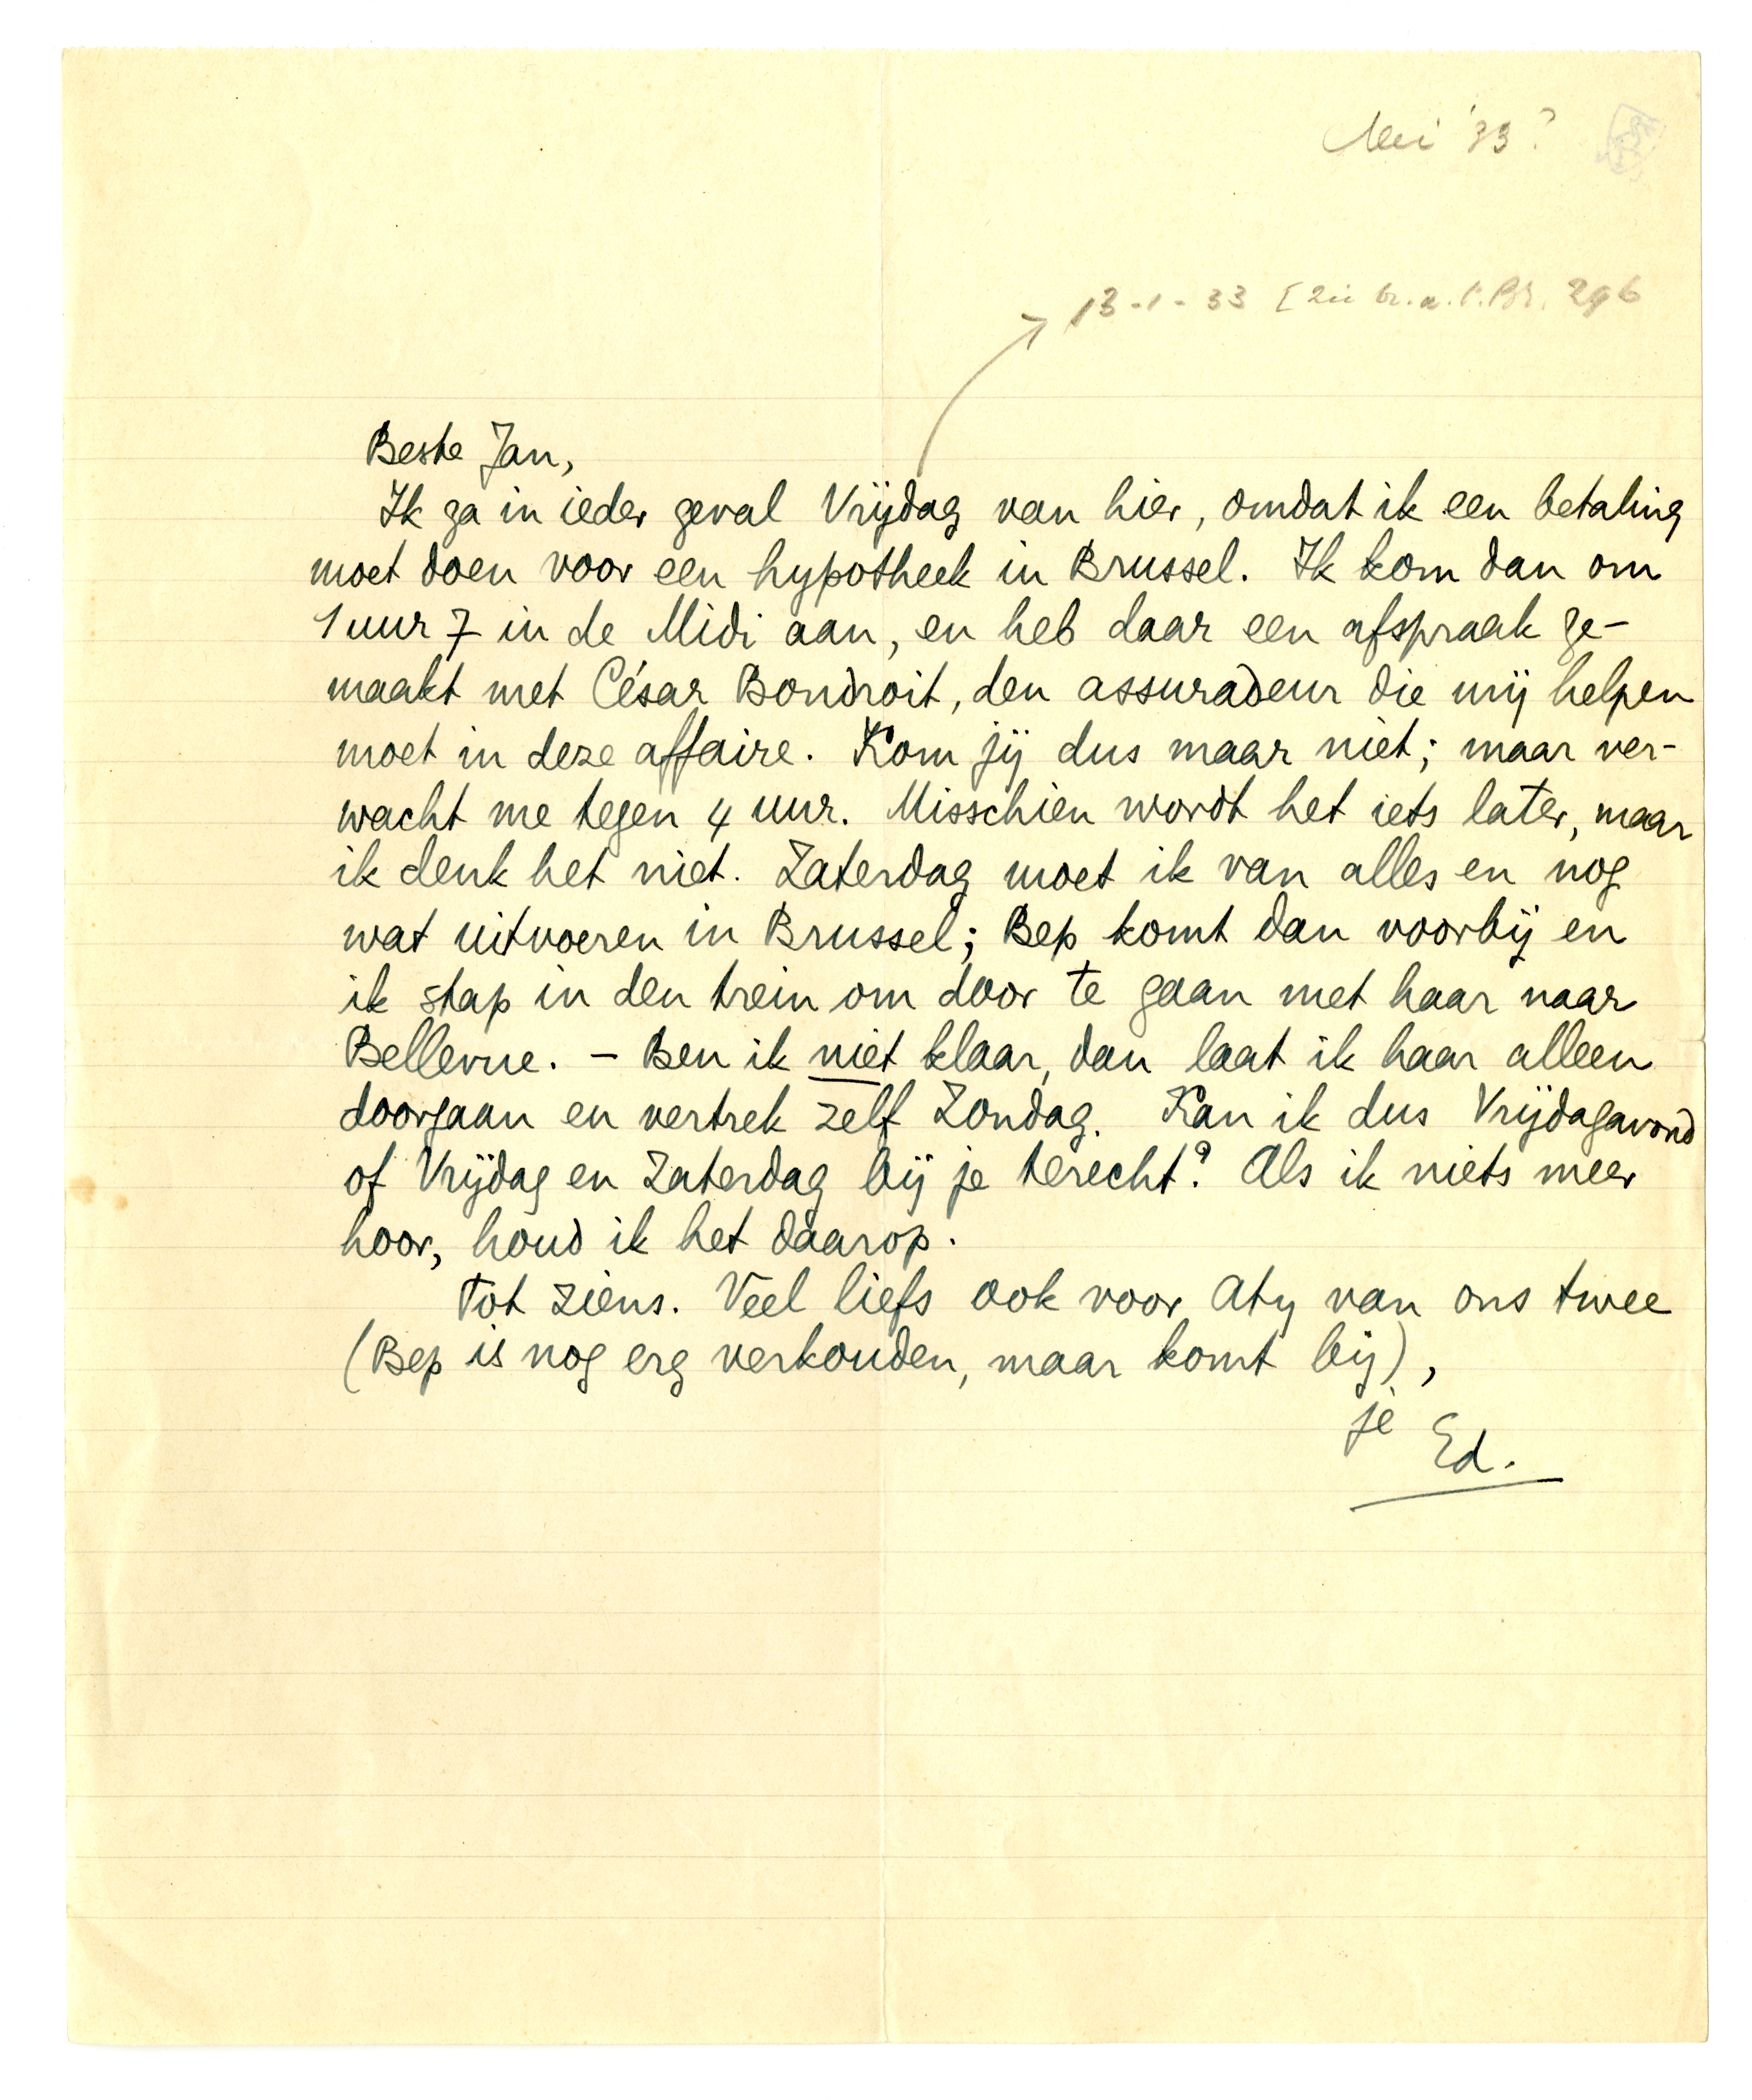 Mei '33?
13-1-33 [zie br. a. 296
Beste Jan,
Ik ga in ieder geval Vrijdag van hier, omdat ik een betaling
moet doen voor een hypotheek in Brussel. Ik kom dan om
1 uur 7 in de Midi aan, en heb daar een afspraak ge-
maakt met César Bondroit, den assuradeur die mij helpen
moet in deze affaire. Kom jij dus maar niet; maar ver-
wacht me tegen 4 uur. Misschien wordt het iets later, maar
ik denk het niet. Zaterdag moet ik van alles en nog
wat uitvoeren in Brussel; Bep komt dan voorbij en
ik stap in den trein om door te gaan met haar naar
Bellevue. – Ben ik niet klaar, dan laat ik haar alleen
doorgaan en vertrek zelf Zondag. Kan ik dus Vrijdagavond
of Vrijdag en Zaterdag bij je terecht? Als ik niets meer
hoor, houd ik het daarop.
Tot ziens. Veel liefs ook voor Aty van ons twee
(Bep is nog erg verkouden, maar komt bij),
je Ed.